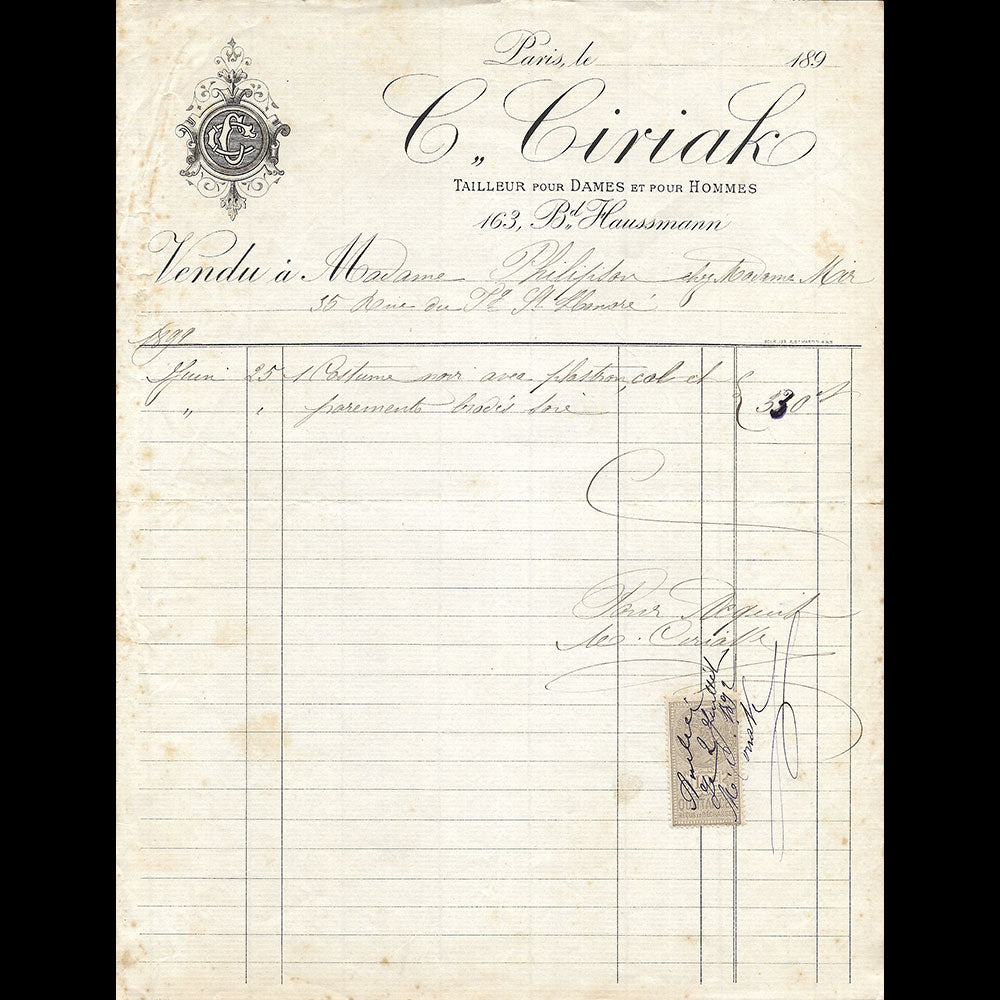 Paris, le 189
CC
C. Ciriak
TAILLEUR POUR DAMES ET POUR HOMMES
163, Bd Haussmann
Vendu à Madame Philipson chez Madame Mir
35 Rue du Fg St Honoré
1892
Juin 25 1 Costume noir avec plastron, col et
" " parements brodés soie 530
Pour Acquit
QUITTANCES
REÇUS ET DÉCHARGES
Paris le
2 Juillet
1892